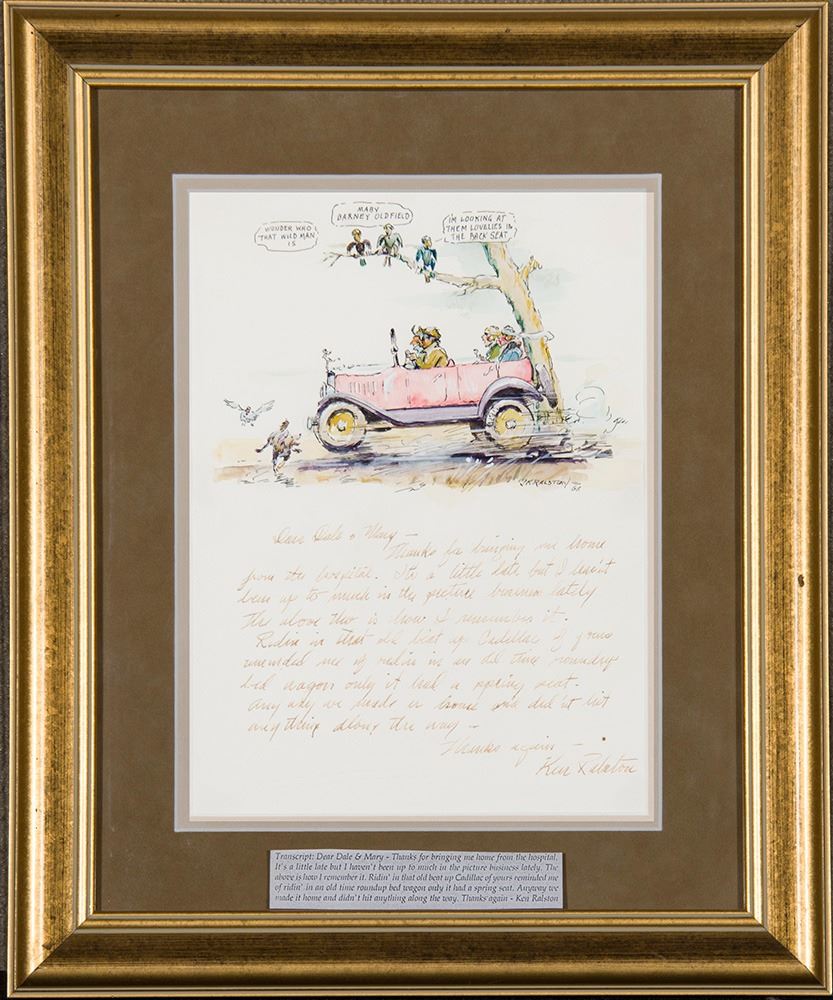 WONDER WHO
THAT WILD MAN
IS
MABY
BARNEY OLDFIELD
I'M LOOKING AT
THEM LOVELIES IN
THE BACK SEAT
JK RALSTON
68
Dear Dale & Mary —
Thanks for bringing me home
from the hospital. It's a little late but I haven't
been up to much in the picture business lately
The above tho is how I remember it.
Ridin in that old beat up Cadillac of yours
reminded me of ridin in an old time roundup
bed wagon only it had a spring seat.
Any way we made it home and did nt hit
anything along the way —
Thanks again —
Ken Ralston
Transcript: Dear Dale & Mary - Thanks for bringing me home from the hospital.
It's a little late but I haven't been up to much in the picture business lately. The
above is how I remember it. Ridin' in that old beat up Cadillac of yours reminded me
of ridin' in an old time roundup bed wagon only it had a spring seat. Anyway we
made it home and didn't hit anything along the way. Thanks again - Ken Ralston